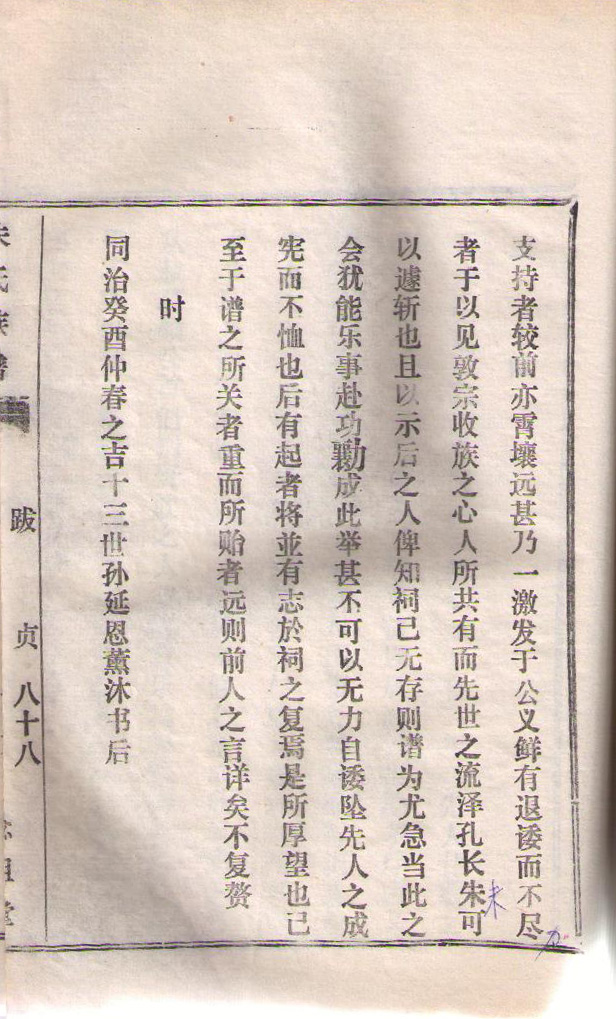 支持者较前亦霄壤远甚乃一激发于公义鲜有退诿而不尽
力
者于以见敦宗收族之心人所共有而先世之流泽孔长朱可
未
以遽斩也且以示后之人俾知祠己无存则谱为尤急当此之
会犹能乐事赴功勷成此举甚不可以无力自诿坠先人之成
宪而不恤也后有起者将並有志於祠之复焉是所厚望也己
至于谱之所关者重而所贻者远则前人之言详矣不复赘
时
同治癸酉仲春之吉十三世孙延恩薰沐书后
朱氏族谱
跋
贞 八十八